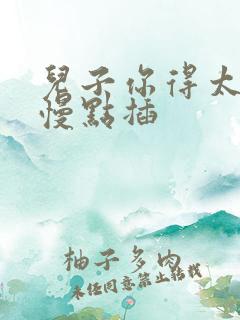 兒子你得太
慢點插
柚子多肉
未经同意禁止转载